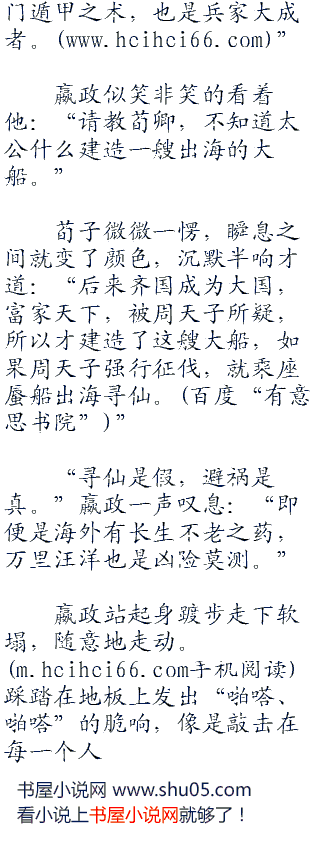 门遁甲之术，也是兵家大成
者。(www.hcihci66.com)”
嬴政似笑非笑的看着
他：“请教荀卿，不知道太
公什么建造一艘出海的大
船。”
荀子微微一愣，瞬息之
间就变了颜色，沉默半晌才
道：“后来齐国成为大国，
富家天下，被周天子所疑，
所以才建造了这艘大船，如
果周天子强行征伐，就乘座
蜃船出海寻仙。(百度“有意
思书院”)”
“寻仙是假，避祸是
真。”嬴政一声叹息：“即
便是海外有长生不老之药，
万里汪洋也是凶险莫测。”
嬴政站起身踱步走下软
塌，随意地走动。
(m.hcihci66.com手机阅读)
踩踏在地板上发出“啪嗒、
啪嗒”的脆响，像是敲击在
每一个人
书屋小说网 www.shu05.com
看小说上书屋小说网就够了！